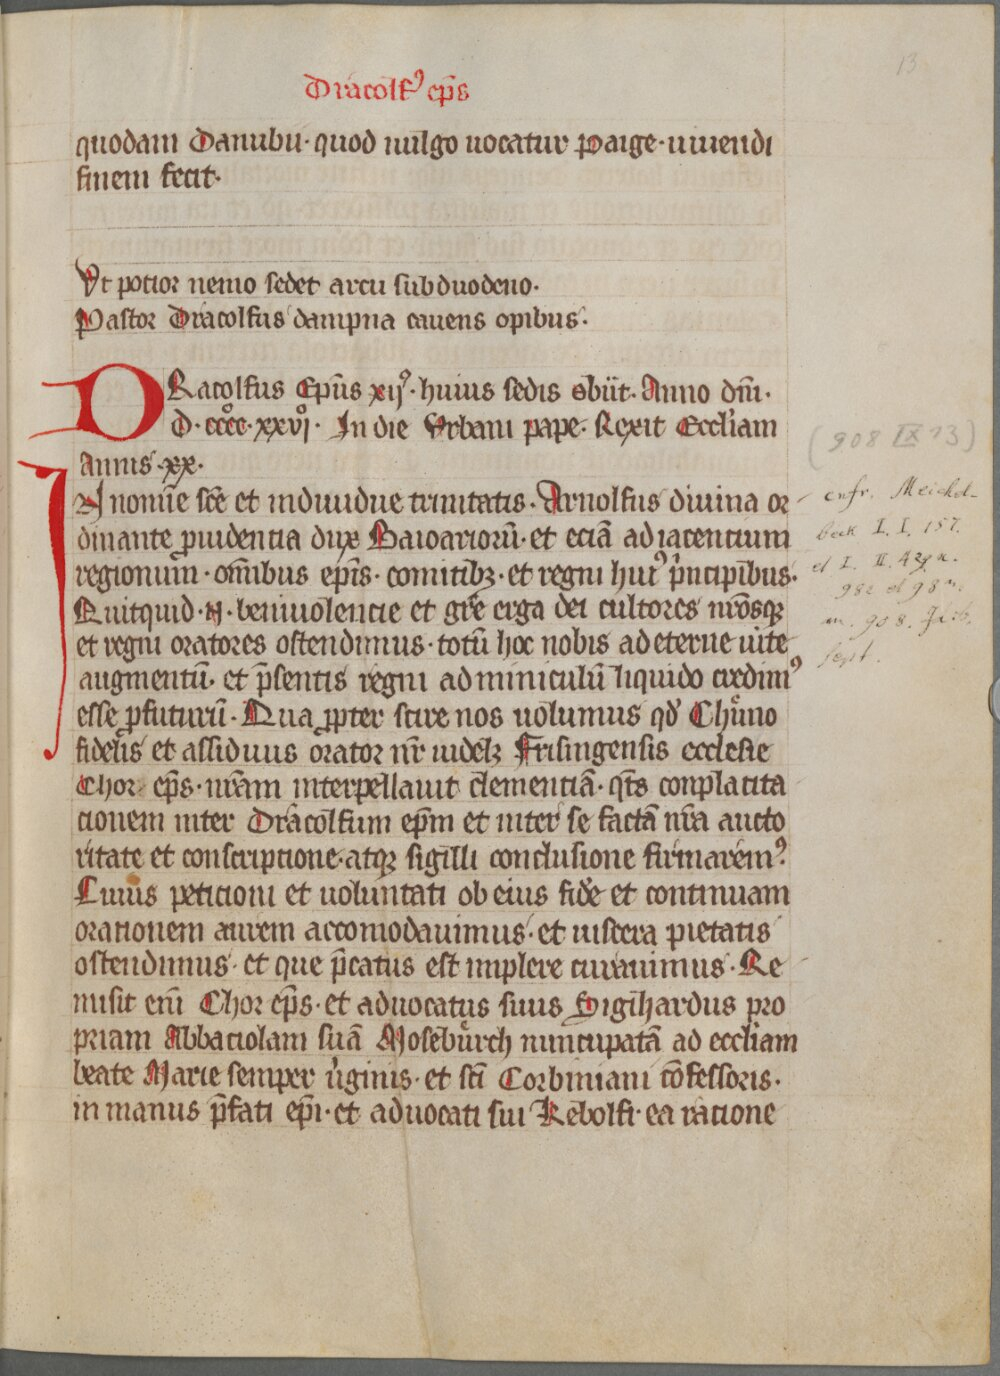 13
Dracolfꝰ ep̄s
quodam Danubii· quod uulgo uocatur Paige· uiuendi
finem fecit·
Vt potior nemo sedet arcu sub duodeno·
Pastor Dracolfus dampna cauens opibus·
DRacolfus Ep̄us xijꝰ· huius sedis obiit· Anno dn̄i·
D· cccc̊· xxvj̊· In die Vrbani pape· Rexit Eccl̄iam
Annis· xx·
IN nomīe sc̄e et indiuidue trinitatis· Arnolfus diuina or
dinante ꝓuidentia dux Baioarioꝝ̄· et eciā adiacencium
regionum· om̄ibus ep̄is· comitibꝫ· et regni huiꝰ p̍ncipibus·
Quitquid· n̄· beniuolencie et gr̄e erga dei cultores nr̄osqꝫ
et regni oratores ostendimus· totū hoc nobis ad eterne uite
augmentū· et p̄sentis regni adminiculū liquido credimꝰ
esse ꝓfuturū· Qua ꝓpter scire nos uolumus qd̄ Chůno
fidelis et assiduus orator nr̄ uidelꝫ Frisingensis ecclesie
Chor ep̄s· nr̄am interpellauit clementiā· qt̄s conplacita
cionem inter Dracolfum ep̄m et inter se factā nr̄a aucto
ritate et conscriptione· atqꝫ sigilli conclusione firmaremꝰ·
Cuius peticioni et uoluntati ob eius fidē et continuam
orationem aurem accomodauimus· et uiscera pietatis
ostendimus· et que p̄catus est implere curauimus· Re
misit eni̅ Chor ep̄s· et aduocatus suus Sigihardus pro
priam Abbaciolam suā Mosebůrch nuncupatā ad eccl̄iam
beate Marie semper u̍ginis· et sc̄i Corbiniani cōfessoris·
in manus p̄fati ep̄i· et aduocati sui Kebolfi· ea racione
(908 IX 13)
cnfr. Meichel-
beck I. I. 157.
et I. II. 429 n.
982 et 98
an. 908.
Sept.